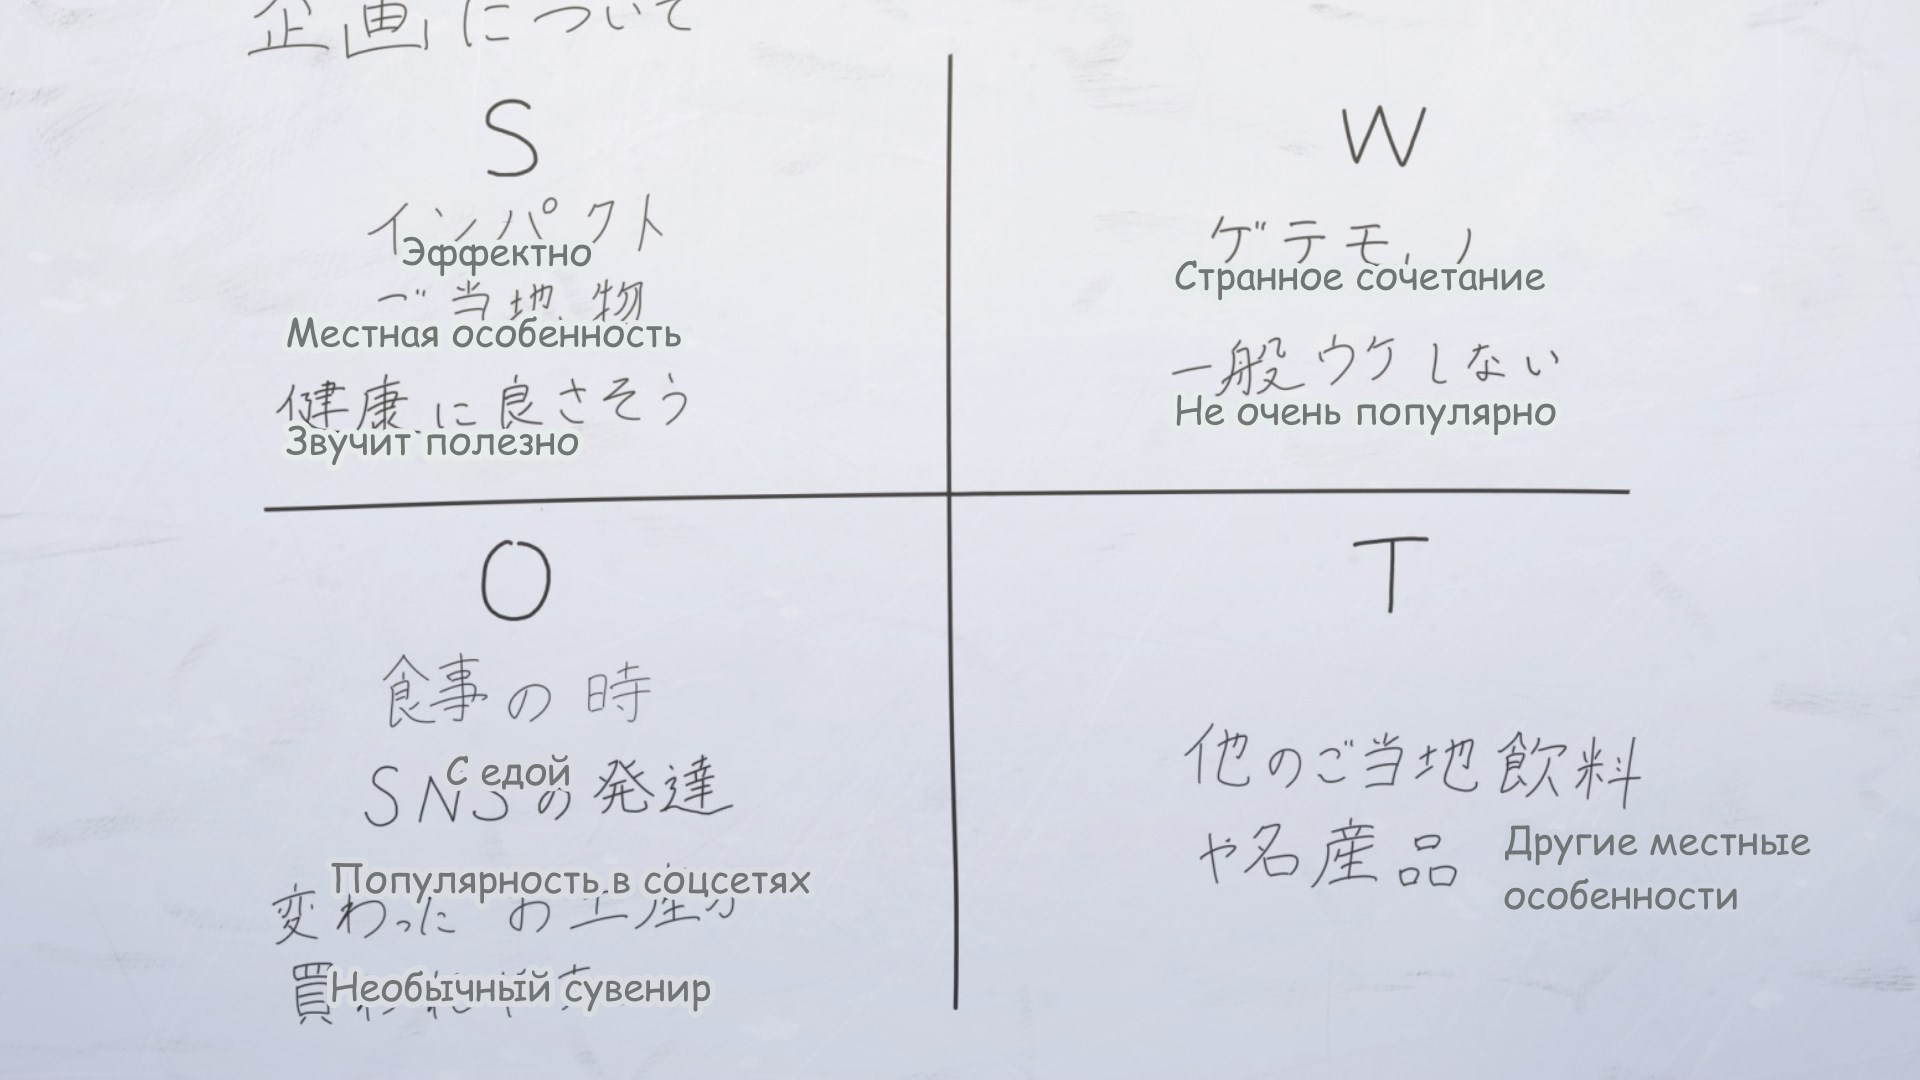 企画について
S
インパクト
Эффектно
ご当地物
Местная особенность
健康に良さそう
Звучит полезно
W
ゲテモノ
Странное сочетание
一般ウケしない
Не очень популярно
O
食事の時
С едой
SNSの発達
Популярность в соцсетях
変わったお土産が
買
Необычный сувенир
T
他のご当地飲料
や名産品
Другие местные
особенности